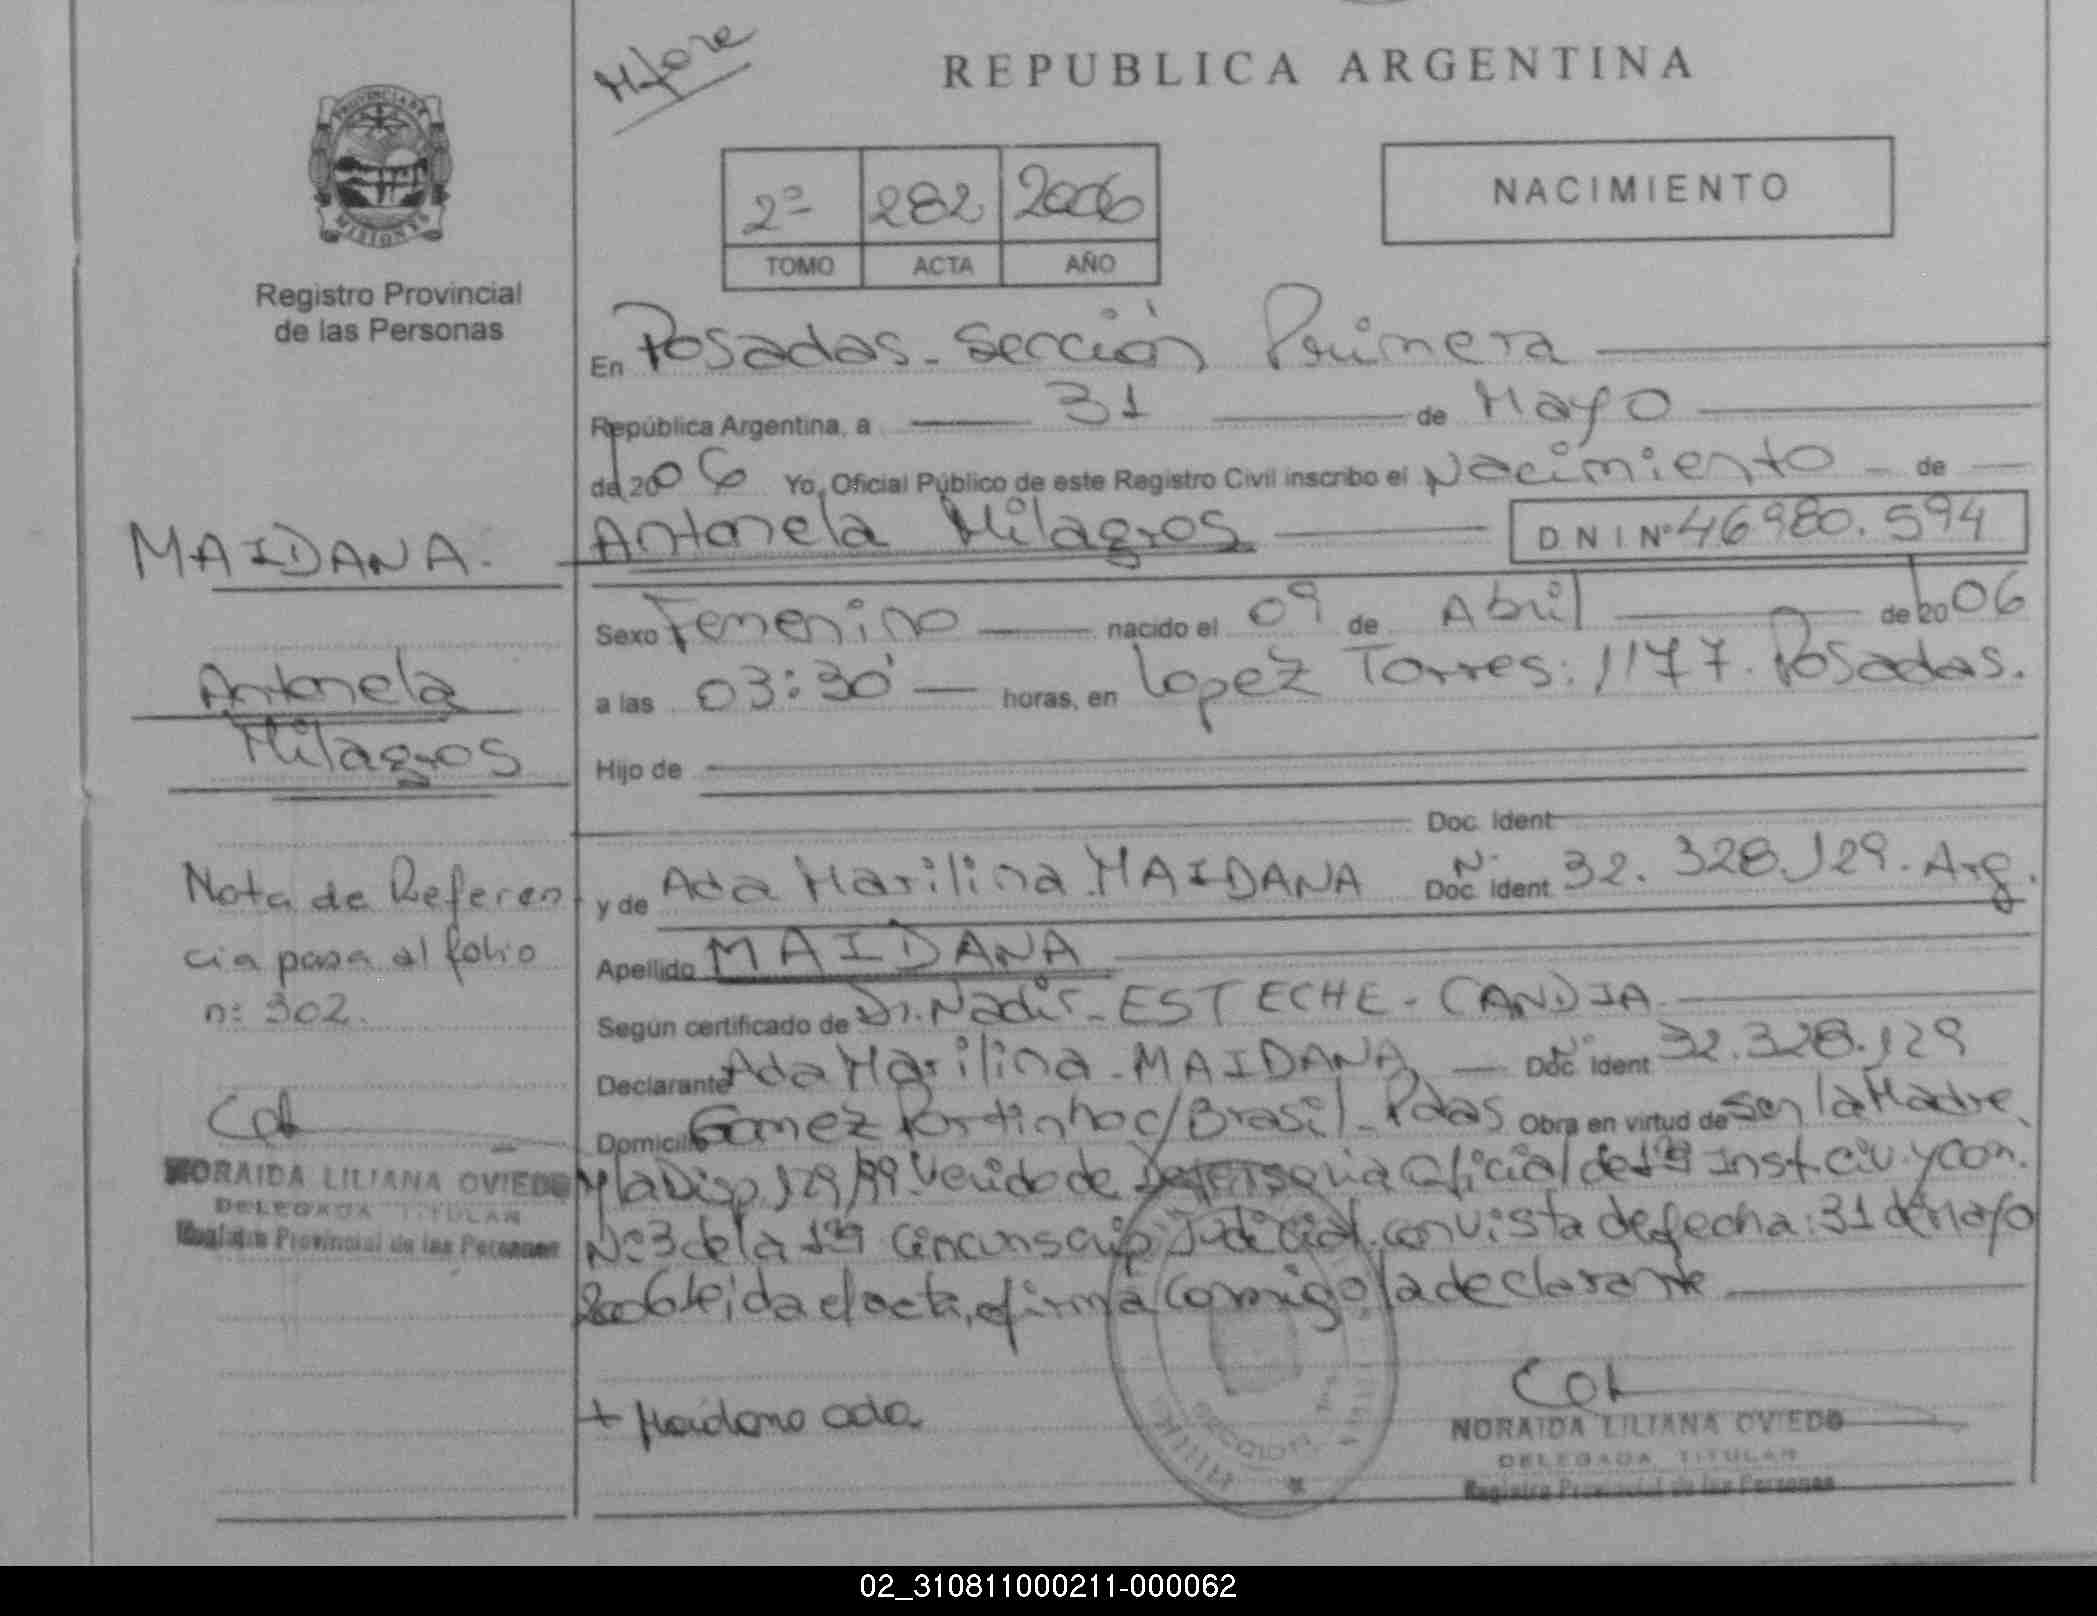 Mfore
REPUBLICA ARGENTINA
PROVINCIA DE
MISIONES
2º 282 2006
TOMO ACTA AÑO
NACIMIENTO
Registro Provincial
de las Personas
En Posadas - Sección Primera
República Argentina, a 31 de Mayo
de 2006 Yo, Oficial Público de este Registro Civil inscribo el Nacimiento - de
MAIDANA.
Antonela Milagros
DNI Nº 46980.594
Sexo Femenino nacido el 09 de Abril de 2006
a las 03:30' horas, en Lopez Torres: 1177. Posadas.
Antonela
Milagros
Hijo de
Doc. Ident
y de Ada Marilina MAIDANA Doc. Ident. Nº 32.328.129. Arg.
Nota de Referen
cia pasa al folio
n: 302.
Apellido MAIDANA
Según certificado de Dr. Nadir - ESTECHE - CANDIA
Declarante Ada Marilina - MAIDANA, Doc. Ident Nº 32.328.129
Domicilio Gomez Portinho c/ Brasil - Pdas Obra en virtud de Ser la Madre
y la Disp 129/99. Venido de Defensoria Oficial de 1ra Inst. Civ. y Com.
Nº 3 de la 1ra Circunscrip Judicial. con vista de fecha: 31 de Mayo
2006 leida el acta, firma conmigo la declarante
NORAIDA LILIANA OVIEDO
DELEGADA TITULAR
Registro Provincial de las Personas
+ Maidana ada
SECCION
NORAIDA LILIANA OVIEDO
DELEGADA TITULAR
Registro Provincial de las Personas
02_310811000211-000062